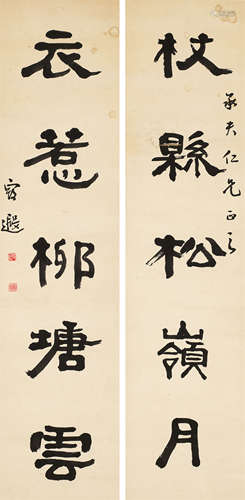 杖縣松嶺月
承夫仁兄正之
衣惹柳塘雲
容邃